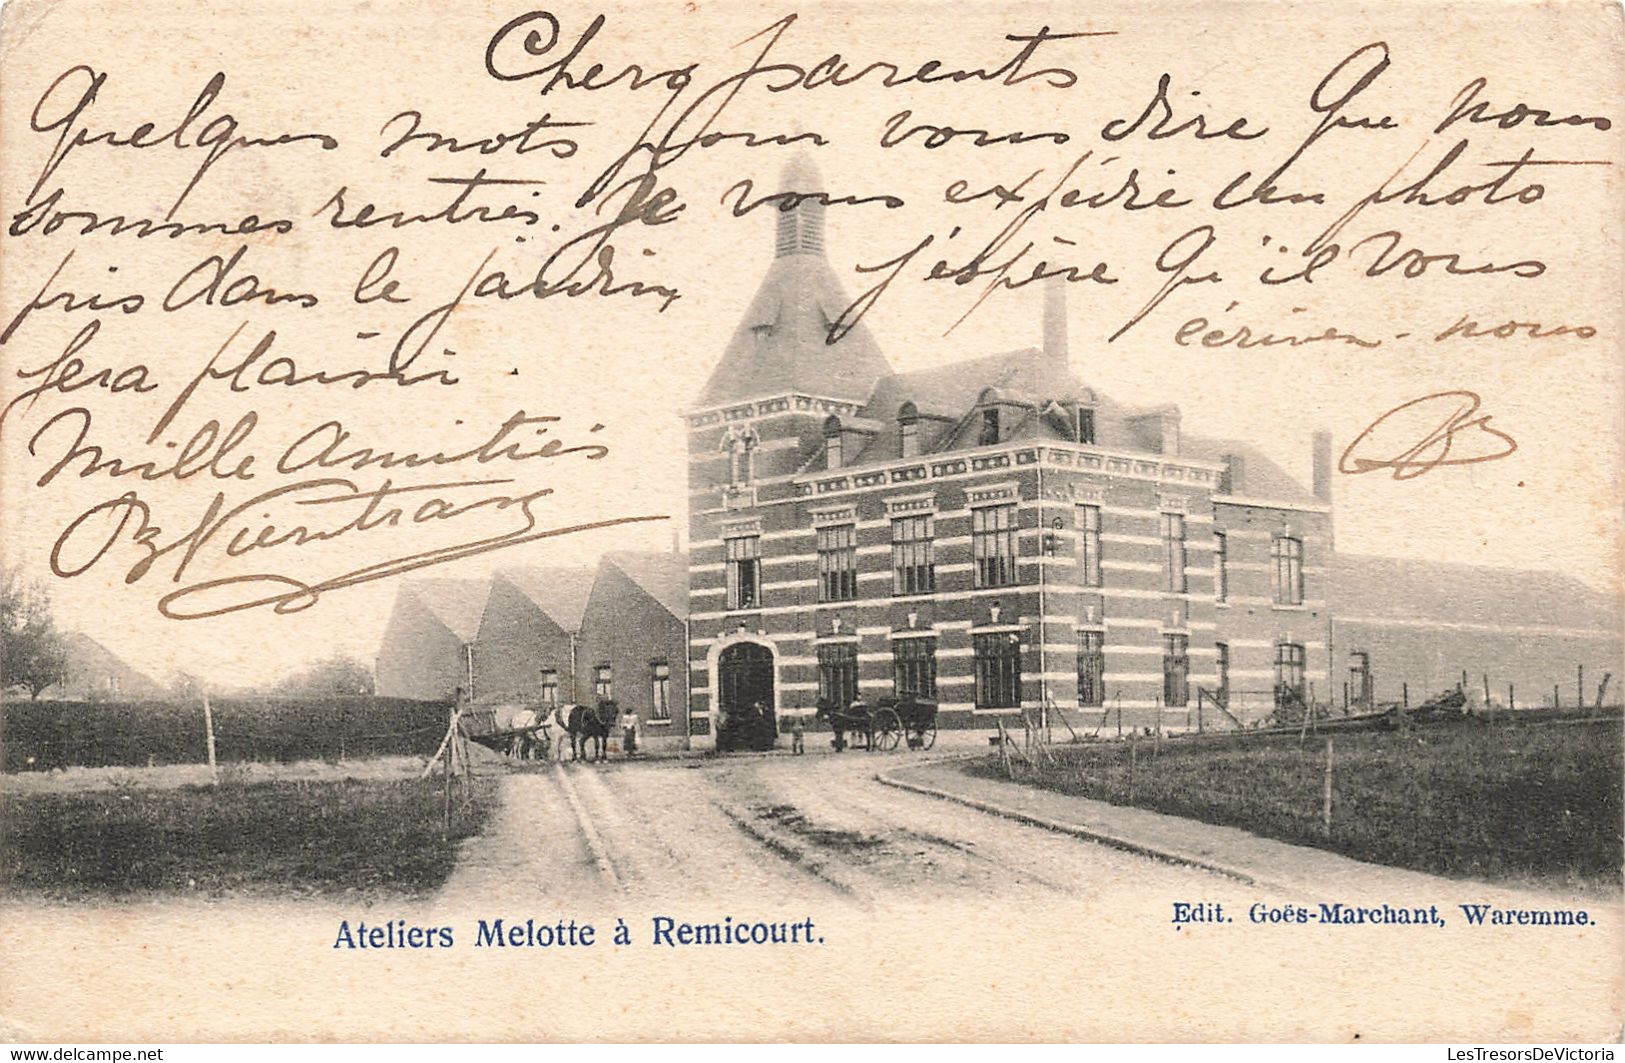 Chers parents
Quelques mots pour vous dire que nous
sommes rentrés. Je vous expédie un photo
pris dans le jardin, j'éspère qu'il vous
fera plaisir. écrivez-nous
Mille Amitiés
Ateliers Melotte à Remicourt.
Edit. Goës-Marchant, Waremme.
delcampe.net
LesTresorsDeVictoria